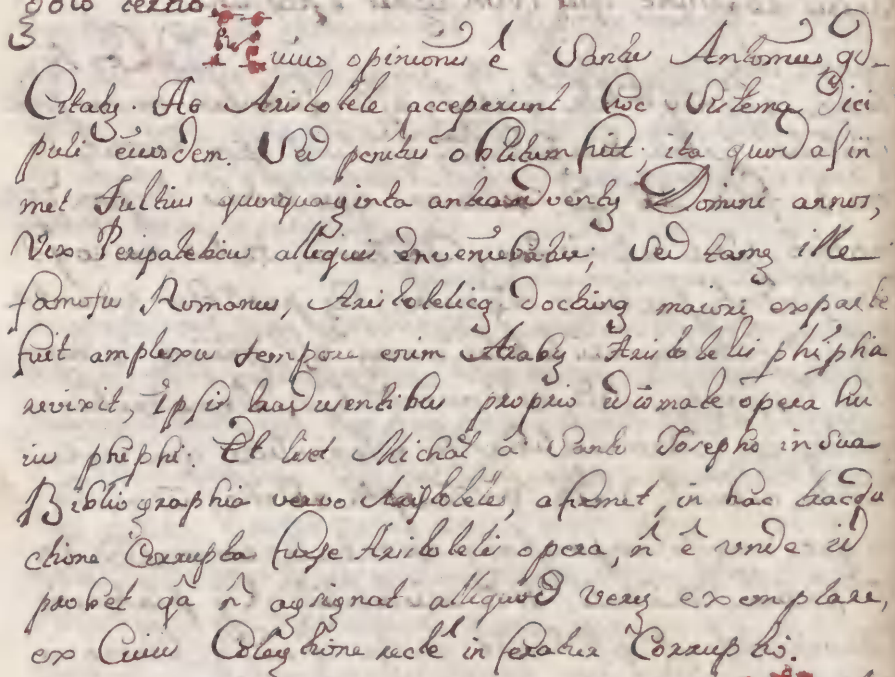 golo tertio.
Huius opinionis ê Santus Antonius qd-
Citatq. Ab Aristotele acceperunt hoc Sistema Dici
puli eiusdem. Sed penitus oblitum fuit; ita quod afir
met Tullius quinquaginta ante adventũ Domini annos,
Vix Peripateticus alliquis invenirebatur; Sed tamẽ ille
famosus Romanus, Aristotelicã doctrinã maiori ex parte
fuit amplexus tempore enim Arabũ Aristotelis phĩphia
revixit, ipsis traducentibus proprio idiomate opera hu
ius phĩphi. Et licet Michãl â Santo Josepho in sua
Bibliographia verbo Aristoteles, afirmet, in hac tradu
ctione Corrupta fuisse Aristotelis opera, ñ ê unde id
probet qâ ñ assignat alliquod verũ exemplare,
ex Cuius Colectione recte inferatur Corruptio.